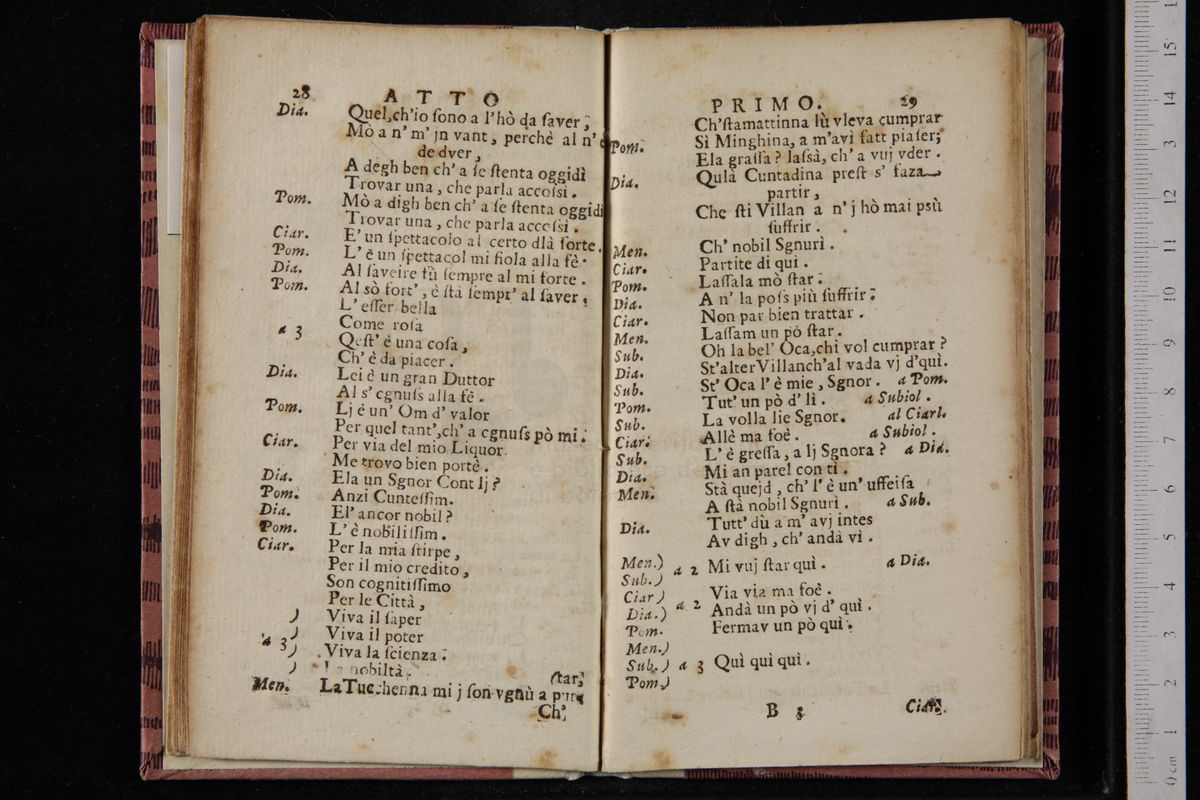 28 ATTO
Dia. Quel, ch'io sono a l'hò da saver;
Mò a n' m' jn vant, perchè al n'
de dver,
A degh ben ch' a se stenta oggidì
Trovar una, che parla accossì.
Pom. Mò a digh ben ch' a se stenta oggidì
Trovar una, che parla accossì.
Ciar. E' un spettacolo al certo dlà sorte.
Pom. L' è un spettacol mi fiola alla fè.
Dia. Al saveire fù sempre al mi forte.
Pom. Al sò fort', è stà sempr' al saver,
L' esser bella
a 3 Come rosa
Qest' è una cosa,
Ch' è da piacer.
Dia. Lei è un gran Duttor
Al s' cgnuss alla fè.
Pom. Lj è un' Om d' valor
Per quel tant', ch' a cgnuss pò mi.
Ciar. Per via del mio Liquor
Me trovo bien portè.
Dia. Ela un Sgnor Cont lj?
Pom. Anzi Cuntessim.
Dia. El' ancor nobil?
Pom. L' è nobilissim.
Ciar. Per la mia stirpe,
Per il mio credito,
Son cognitissimo
Per le Città,
) Viva il saper
a 3 ) Viva il poter
) Viva la scienza.
) La nobiltà.
star,
Men. La Tucchenna mi j son vgnù a
Ch'
PRIMO. 29
Ch'stamattinna lù vleva cumprar
Sì Minghina, a m'avì fatt piaser;
Pom. Ela grassa? lassà, ch' a vuj vder.
Dia. Qulà Cuntadina prest s' faza
partir,
Che sti Villan a n' j hò mai psù
suffrir.
Men. Ch' nobil Sgnurì.
Ciar. Partite di quì.
Pom. Lassala mò star.
Dia. A n' la poss più suffrir.
Ciar. Non par bien trattar.
Men. Lassam un pò star.
Sub. Oh la bel' Oca, chi vol cumprar?
Dia. St'alter Villan ch'al vada vj d'quì.
Sub. St' Oca l' è mie, Sgnor. a Pom.
Pom. Tut' un pò d' lì. a Subiol.
Sub. La volla lie Sgnor. al Ciarl.
Ciar. Allè ma foè. a Subiol.
Sub. L' è gressa, a lj Sgnora? a Dia.
Dia. Mi an parel con tì.
Men. Stà quejd, ch' l' è un' uffeisa
A stà nobil Sgnurì. a Sub.
Dia. Tutt' dù a m' avj intes
Av digh, ch' andà vì.
Men.)
Sub.) a 2 Mi vuj star quì. a Dia.
Ciar) Via via ma foè.
Dia.) a 2 Andà un pò vj d' quì.
Pom. Fermav un pò quì.
Men.)
Sub.) a 3 Quì quì quì.
Pom.)
B 3 Ciar.